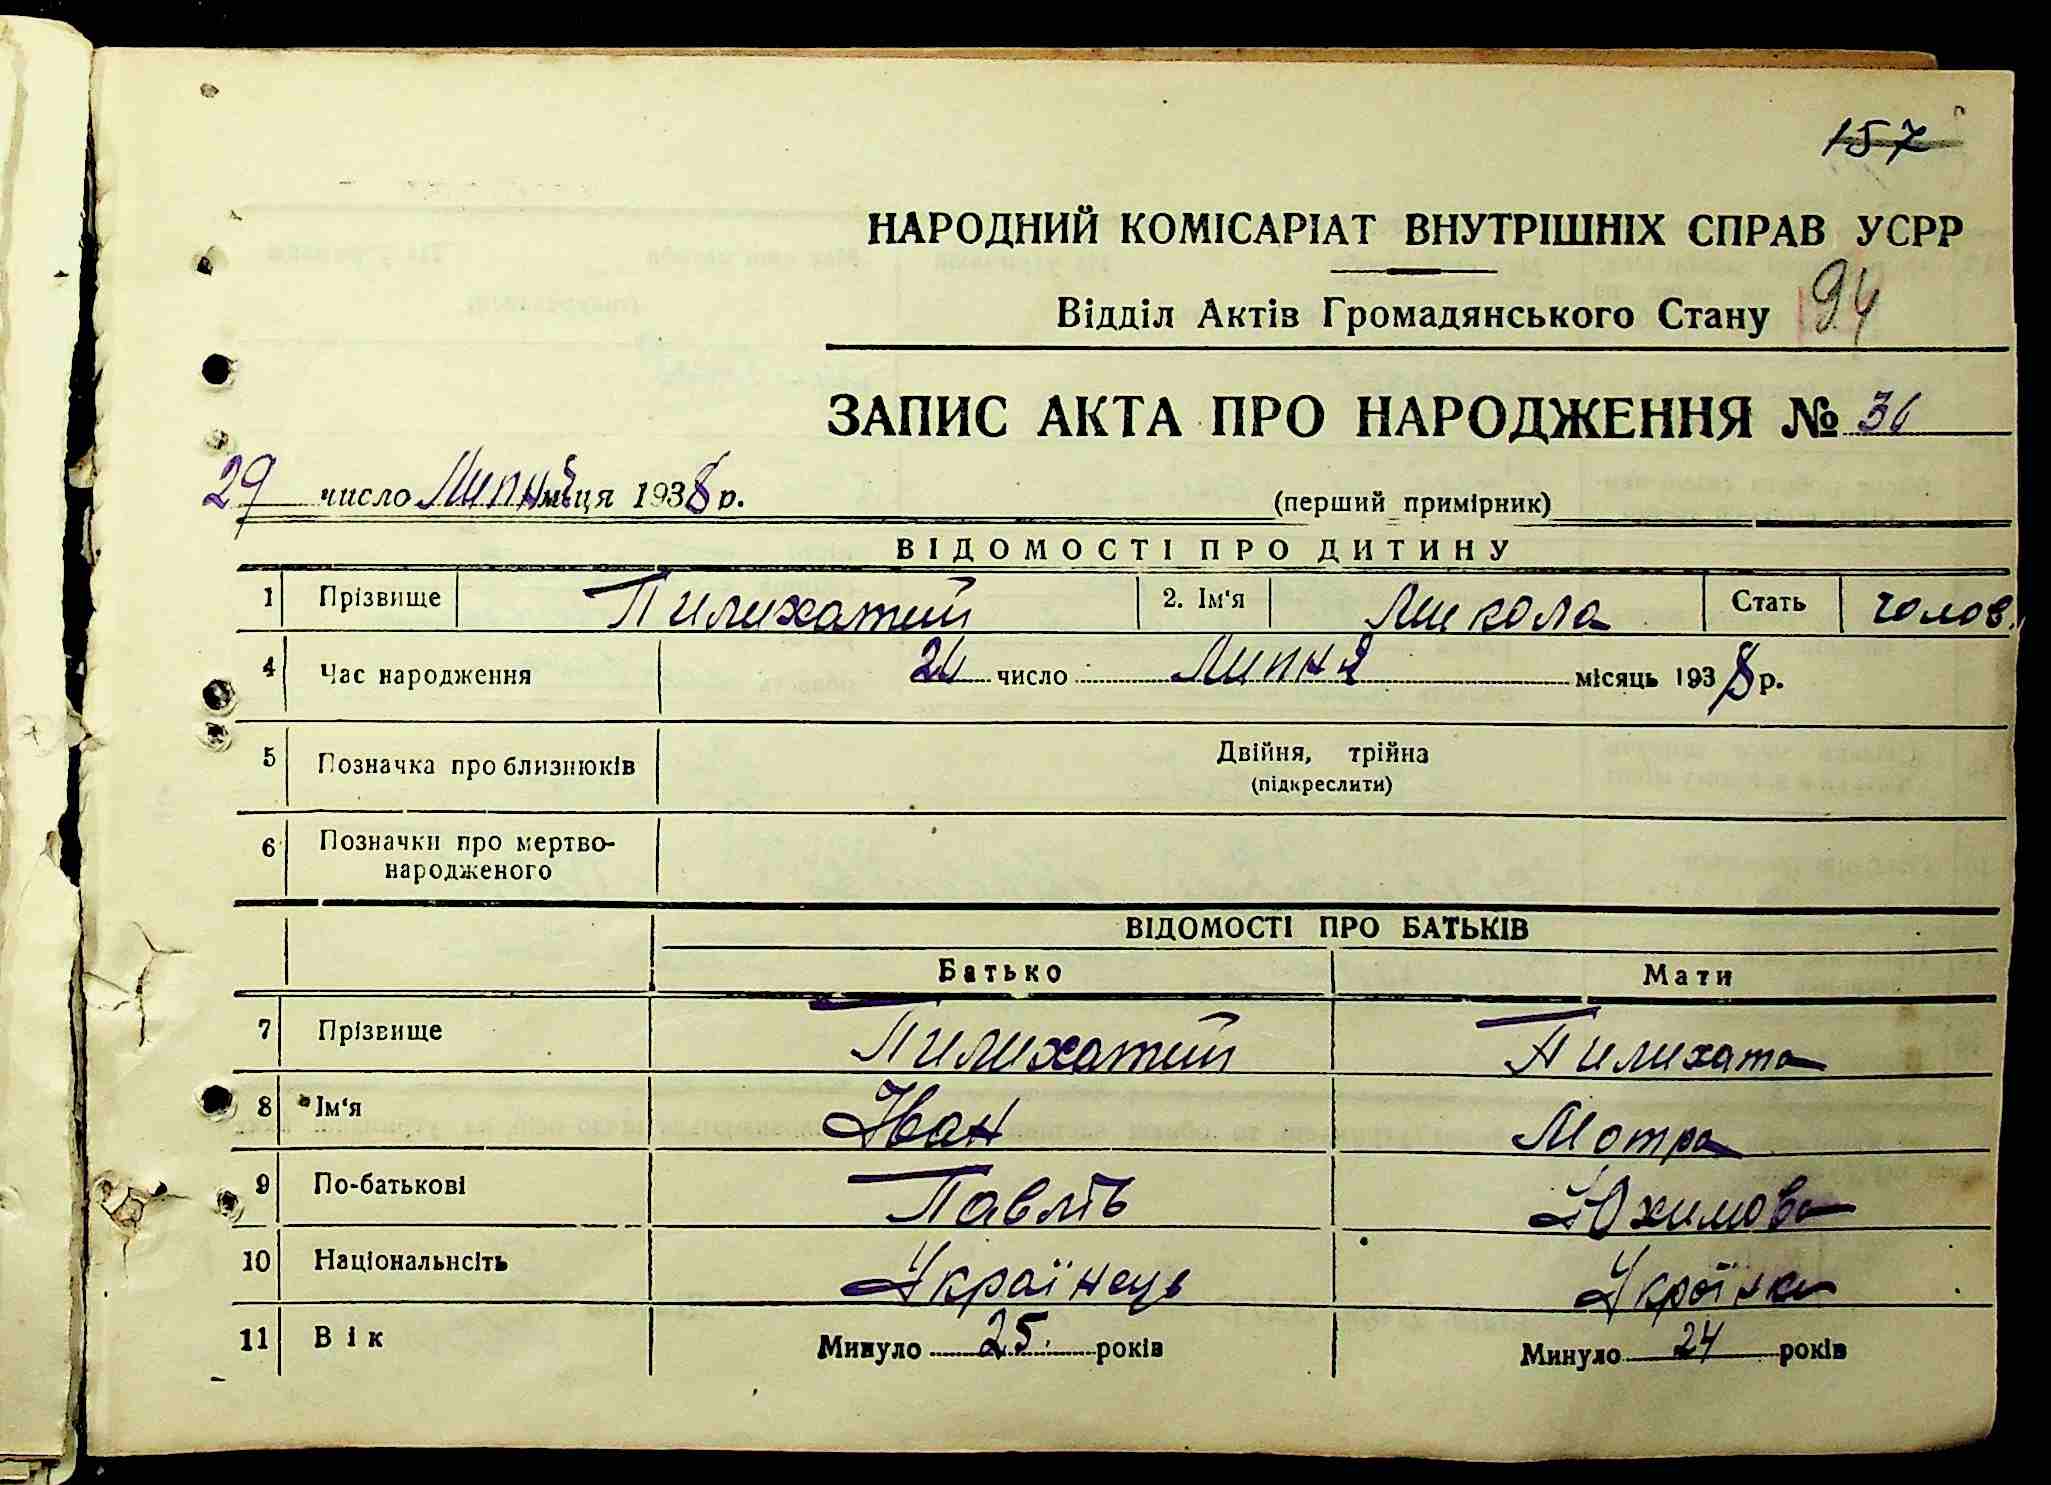 157
НАРОДНИЙ КОМІСАРІАТ ВНУТРІШНІХ СПРАВ УСРР
Відділ Актів Громадянського Стану 94
ЗАПИС АКТА ПРО НАРОДЖЕННЯ № 36
29 число Липня м-ця 1938 р. (перший примірник)
ВІДОМОСТІ ПРО ДИТИНУ
1 Прізвище Пилихатий 2. Ім'я Микола Стать чолов.
4 Час народження число Липня місяць 1938 р.
5 Позначка про близнюків Двійня, трійна
(підкреслити)
6 Позначки про мертво-
народженого
ВІДОМОСТІ ПРО БАТЬКІВ
Батько Мати
7 Прізвище Пилихатий Пилихата
8 Ім'я Іван Мотра
9 По-батькові Павлів Юхимова
10 Національнсіть Українець Українка
11 Вік Минуло 25 років Минуло 24 років